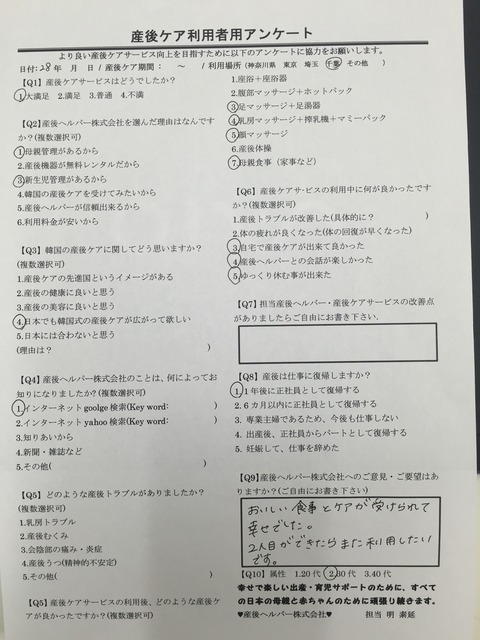 産後ケア利用者用アンケート
より良い産後ケアサービス向上を目指すために以下のアンケートに協力をお願いします。
日付:28年 月 日 / 産後ケア期間: ～ / 利用場所 (神奈川県 東京 埼玉 千葉 その他 )
【Q1】産後ケアサービスはどうでしたか?
1.大満足 2.満足 3.普通 4.不満
【Q2】産後ヘルパー株式会社を選んだ理由はなんですか?(複数選択可)
1.母親管理があるから
2.産後機器が無料レンタルだから
3.新生児管理があるから
4.韓国の産後ケアを受けてみたいから
5.産後ヘルパーが信頼出来るから
6.利用料金が安いから
【Q3】韓国の産後ケアに関してどう思いますか?
(複数選択可)
1.産後ケアの先進国というイメージがある
2.産後の健康に良いと思う
3.産後の美容に良いと思う
4.日本でも韓国式の産後ケアが広がって欲しい
5.日本には合わないと思う
(理由は? )
【Q4】産後ヘルパー株式会社のことは、何によってお
知りになりましたか?(複数選択可)
1.インターネット goolge 検索(Key word: )
2.インターネット yahoo 検索(Key word: )
3.知りあいから
4.新聞・雑誌など
5.その他( )
【Q5】どのような産後トラブルがありましたか?
(複数選択可)
1.乳房トラブル
2.産後むくみ
3.会陰部の痛み・炎症
4.産後うつ(精神的不安定)
5.その他( )
【Q5】産後ケアサービスの利用後、どのような産後ケ
アが良かったですか?(複数選択可)
1.座浴＋座浴器
2.腹部マッサージ＋ホットパック
3.足マッサージ＋足湯器
4.乳房マッサージ＋搾乳機＋マミーパック
5.顔マッサージ
6.産後体操
7.母親食事（家事など）
【Q6】産後ケアサ-ビスの利用中に何が良かったです
か?(複数選択可)
1.産後トラブルが改善した(具体的に? )
2.体の疲れが良くなった(体の回復が早くなった)
3.自宅で産後ケアが出来て良かった
4.産後ヘルパーとの会話が楽しかった
5.ゆっくり休む事が出来た
【Q7】担当産後ヘルパー・産後ケアサービスの改善点
がありましたらご自由にお書き下さい.
【Q8】産後は仕事に復帰しますか?
1. 1年後に正社員として復帰する
2. 6カ月以内に正社員として復帰する
3. 専業主婦であるため、今後も仕事しない
4. 出産後、正社員からパートとして復帰する
5. 妊娠して、仕事を辞めた
【Q9】産後ヘルパー株式会社へのご意見・ご要望はあ
りますか?(ご自由にお書き下さい)
おいしい食事とケアが受けられて
幸せでした。
2人目ができたらまた利用したい
です。
【Q10】属性 1.20代 2.30代 3.40代
幸せで楽しい出産・育児サポートのために、すべて
の日本の母親と赤ちゃんのために頑張り続きます。
♥産後ヘルパー株式会社♥ 担当 明 素延